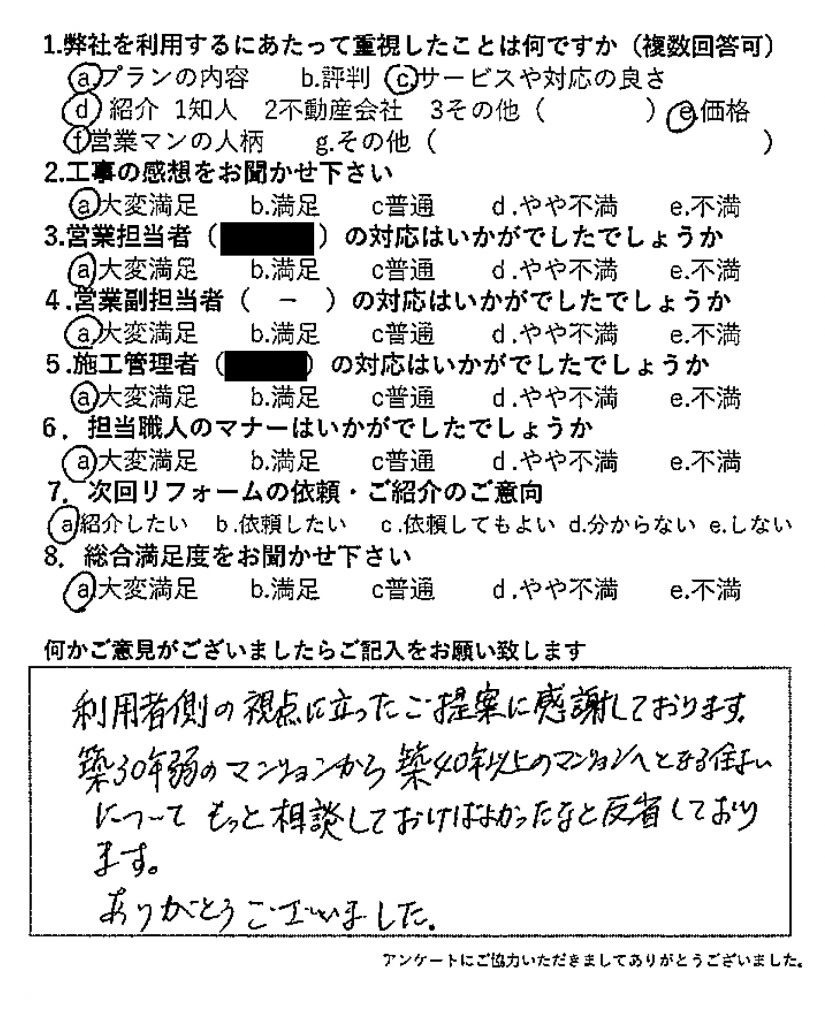 1.弊社を利用するにあたって重視したことは何ですか（複数回答可）
a.プランの内容 b.評判 c.サービスや対応の良さ
d 紹介 1知人 2不動産会社 3その他（ ）e.価格
f営業マンの人柄 g.その他（ ）
2.工事の感想をお聞かせ下さい
a.大変満足 b.満足 c普通 d.やや不満 e.不満
3.営業担当者（ ）の対応はいかがでしたでしょうか
a.大変満足 b.満足 c普通 d.やや不満 e.不満
4.営業副担当者（ － ）の対応はいかがでしたでしょうか
a.大変満足 b.満足 c普通 d.やや不満 e.不満
5.施工管理者（ ）の対応はいかがでしたでしょうか
a.大変満足 b.満足 c普通 d.やや不満 e.不満
6．担当職人のマナーはいかがでしたでしょうか
a.大変満足 b.満足 c普通 d.やや不満 e.不満
7．次回リフォームの依頼・ご紹介のご意向
a紹介したい b.依頼したい c.依頼してもよい d.分からない e.しない
8．総合満足度をお聞かせ下さい
a.大変満足 b.満足 c普通 d.やや不満 e.不満
何かご意見がございましたらご記入をお願い致します
利用者側の視点に立ったご提案に感謝しております。
築30年弱のマンションから築40年以上のマンションへとなる住まい
について もっと相談しておけばよかったなと反省しており
ます。
ありがとうございました。
アンケートにご協力いただきましてありがとうございました。